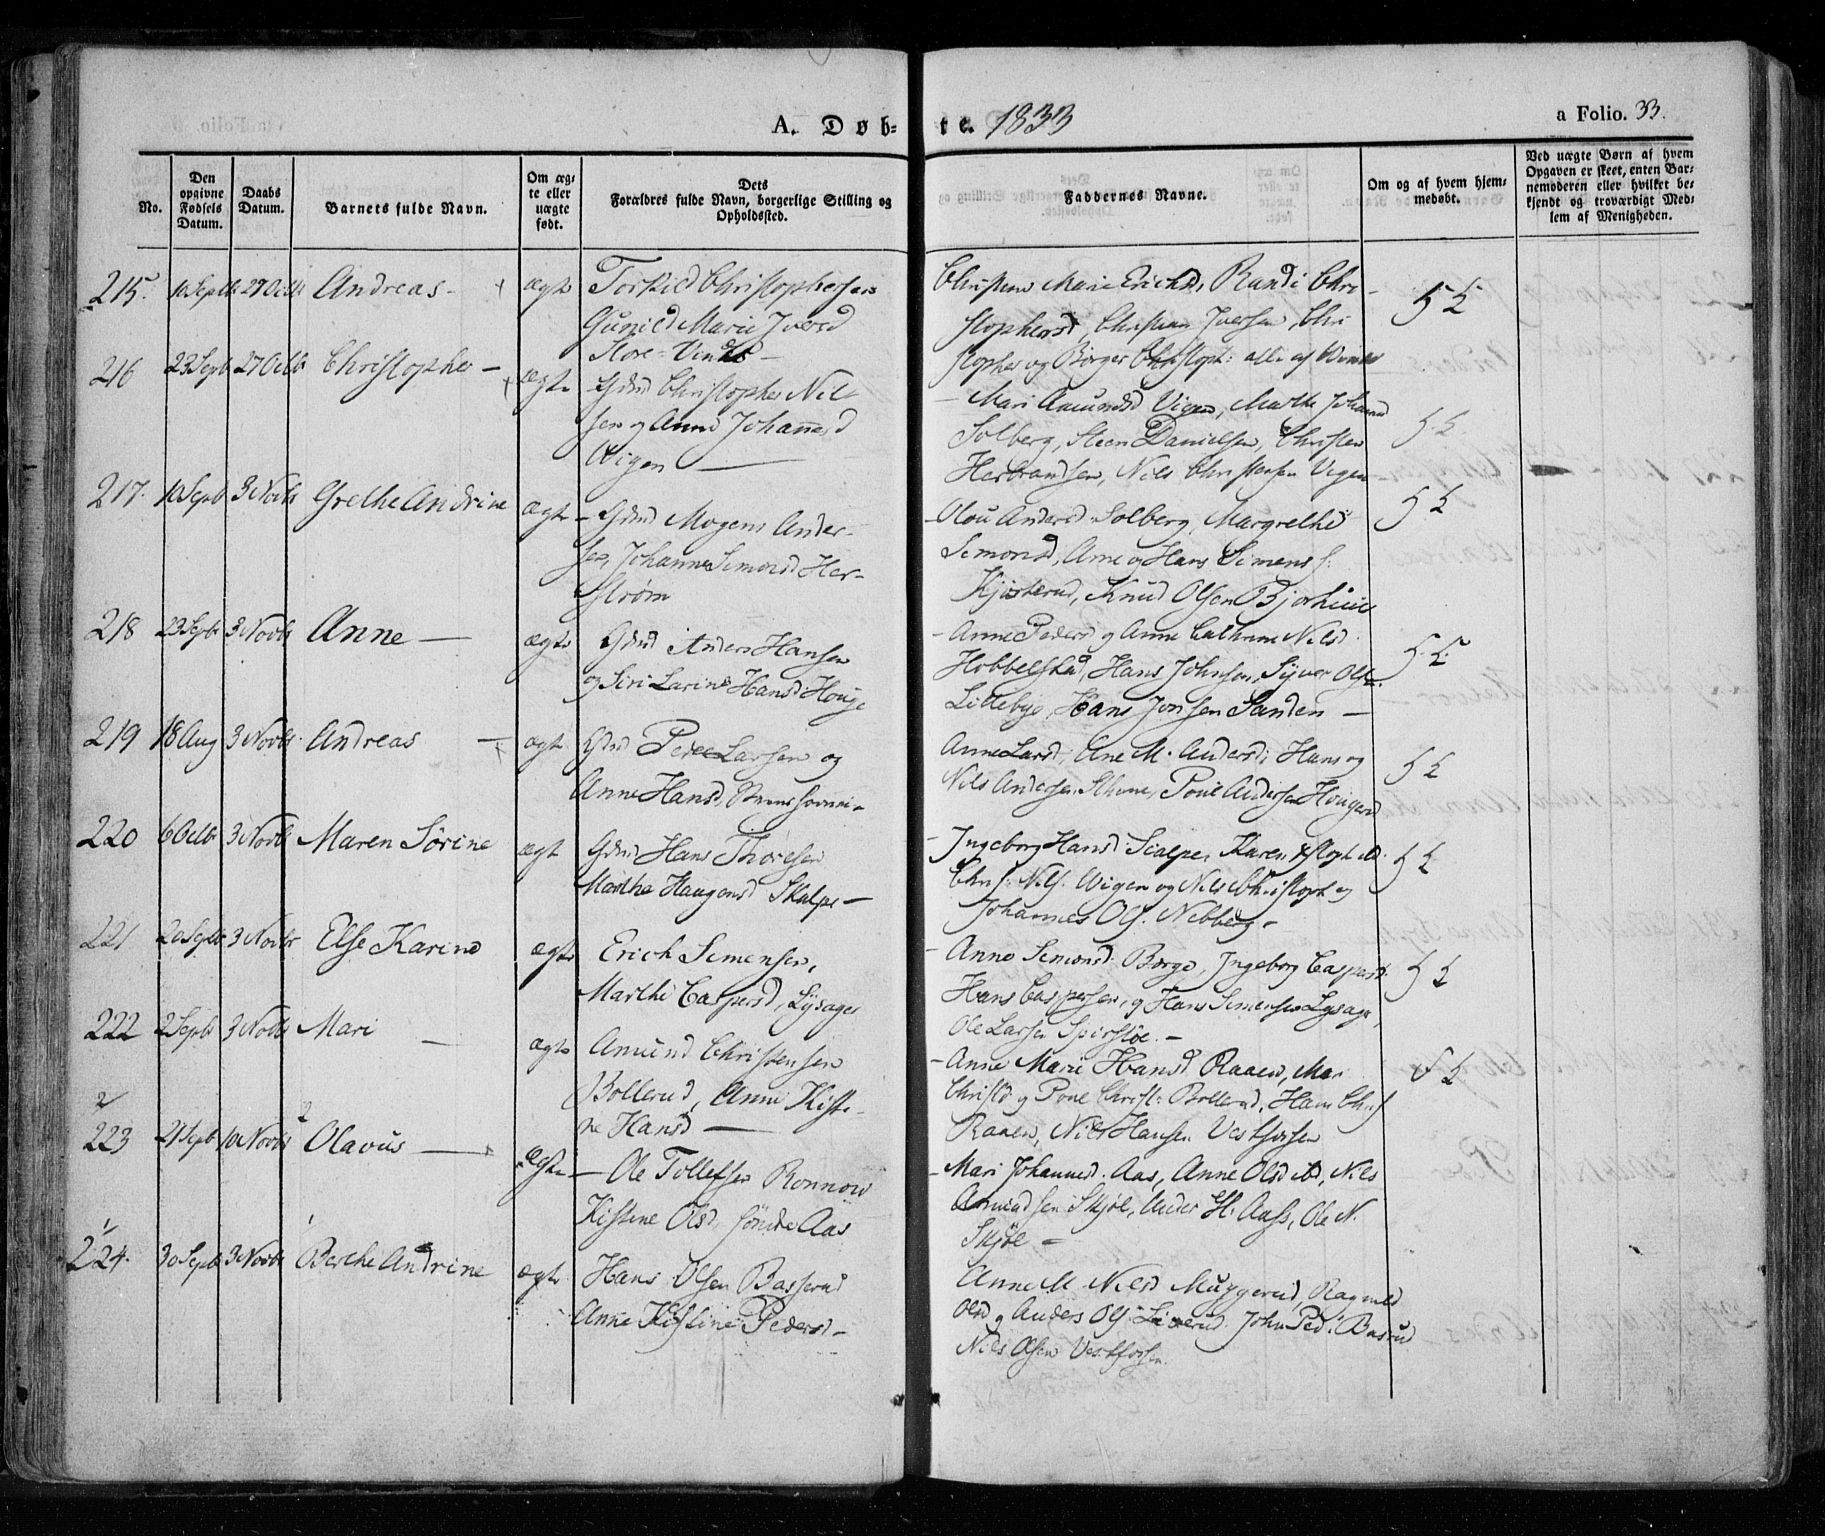 A. Døb-te. 1833
a Folio. 33.
No.
Den opgivne Fødsels Datum.
Daabs Datum.
Barnets fulde Navn.
Om ægte eller uægte født.
Dets Forældres fulde Navn, borgerlige Stilling og Opholdssted.
Faddernes Navne.
Om og af hvem hjemmedøbt.
Ved uægte Børn af hvem Opgaven er skeet, enten Barnemoderen eller hvilket bekjendt og troværdigt Medlem af Menigheden.
215. 10 Septb 27 Octb Andreas - ægte
Torkild Christophersen
Gunild Marie Iversd
Store-
Marie Erichsd, Randi Chri-
stophersd, Christian Iversen, Chri
stopher og Børger Christoph: alle af
216 23 Septb 27 Octb Christopher - ægte
Gdmd Christopher Nil
sen og Anne Johannesd
Vigen -
- Mari Amundsd Vigen, Marthe Johannsd
Solberg, Steen Danielsen, Christen
Herbransen, Nils Christensen Vigen
217. 10 Septb 3 Novbr Grethe Andrine ægte
- Gdmd Mogens Ander-
sen, Johanne Simonsd Her-
strøm
- Olou Andersd Solberg, Margrethe
Simonsd, Arne og Hans Simens s:
Knud Olsen
218 23 Septbr 3 Novbr Anne - ægte
Gdmd Anders Hansen
og Siri Larine Hansd Houge
- Anne Pedersd og Anne Cathrine Nilsd.
Hobbelstad, Hans Johnsen, Syver Olse.
Lillebye, Hans Jonsen Sanden -
219 18 Aug 3 Novbr. Andreas - ægt
Gdmd Peder Larsen og
Anne Hansd,
Anne Larsd, Ane M. Andersd; Hans og
Nils Andersen Poul Andersen
220 6 Octbr 3 Novb Maren Sørine ægt
Gdmd Hans Thoresen
Marthe Haagensd Skalpe -
- Ingeborg Hansd Sialpe, Karen
Nils. Wigen og Nils Christoph og
Johannes Ols. Nebberg -
221 20 Septbr 3 Novbr Else Karine ægte
Erich Simensen,
Marthe Caspersd, Lysager
- Anne Simonsd Borge, Ingeborg Caspersd.
Hans Caspersen, og Hans Simensen Lysager,
Ole Larsen -
222 2 Septb 3 Novbr Mari - ægte
Amund Christensen
Bollerud, Anne Kisti-
ne Hansd -
- Anne Marie Hansd Raaen, Mari
Christd og Christ: Bollerud, Hans Chr.
Raaen, Nils Hansen Vestfossen
2
223 21 Septb 10 Novbr Olavus - ægte
- Ole Tollefsen
Kistine Olsd, Søndre Aas
- Mari Johannesd. Aas, Anne Olsd ibd, Nils
Amundsen Skjøl, Ander H. Aass, Ole N.
Skjøl -
1
224. 30 Septb 3 Novbr Berthe Andrine ægte
Hans Olsen Basserud
Anne Kistine Pedersd -
Anne M Nilsd Muggerud, Ragnild
Olsd og Anders Ols John Ped: Basrud
Nils Olsen Vestfossen.